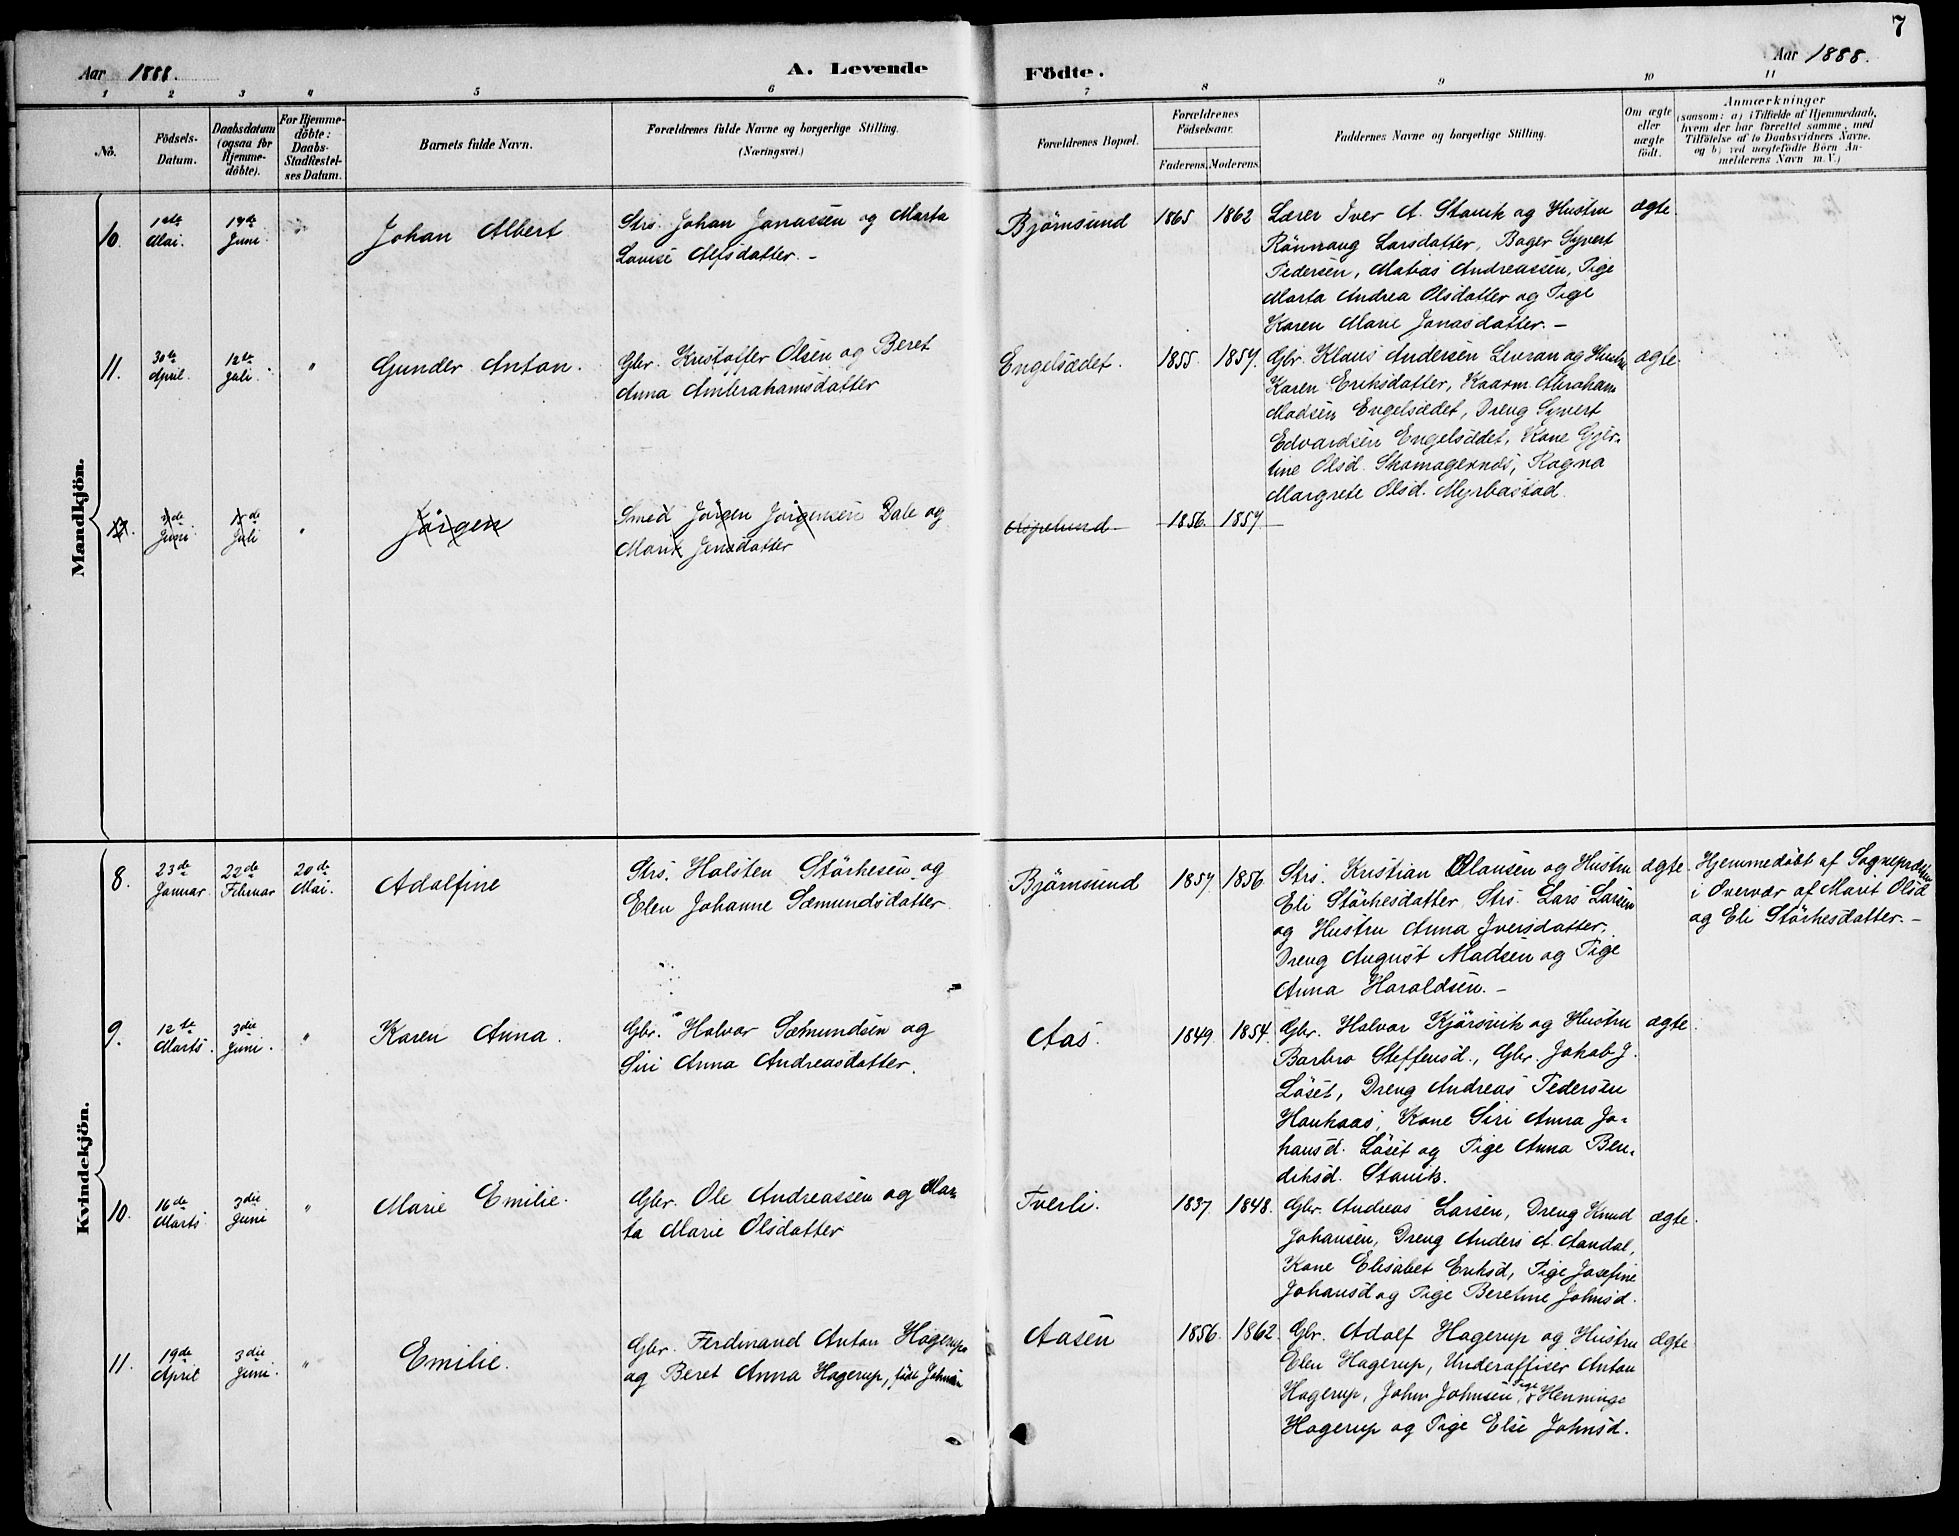 7
Aar 1888.
A. Levende
Födte.
Aar 1888.
1 2 3 4 5 6 7 8 9 10 11
No.
Födsels-
Datum.
Daabsdatum
(ogsaa for
Hjemme-
döbte).
For Hjemme-
döbte:
Daabs-
Stadfæstel-
ses Datum.
Barnets fulde Navn.
Forældrenes fulde Navne og borgerlige Stilling.
(Næringsvei.)
Forældrenes Bopæl.
Forældrenes
Födselsaar.
Faderens. Moderens.
Faddernes Navne og borgerlige Stilling.
Om ægte
eller
uægte
födt.
Anmærkninger
(saasom: a) i Tilfælde af Hjemmedaab,
hvem der har forrettet samme, med
Tilföielse af to Daabsvidners Navne.
og b) ved uægtefödte Börn An-
melderens Navn m. V.)
Mandkjön.
10.
1ste
Mai.
17de
Juni.
"
Johan Albert
Strs. Johan Jonassen og Marta
Lovise Alfsdatter. -
Bjørnsund
1865
1862
Lærer Iver A. Stavik og Hustru
Rönnaug Larsdatter, Bager Syvert
Pedersen, Matias Andreassen, Pige
Marta Andrea Olsdatter og Pige
Karen Marie Jonasdatter. -
ægte
11.
30te
April.
12te
Juli.
"
Gunder Anton.
Gbr. Kristoffer Olsen og Beret
Anna Anterahamsdatter
Engelsædet.
1855
1857.
Gbr. Klaus Andersen Levran og Hustru
Karen Eriksdatter, Kaarm. Abraham
Madsen Engelsædet, Dreng Syvert
Edvardsen Engelsædet, Kone Gjer-
tine Olsd. Skomagernæs, Ragna
Margrete Olsd. Myrbostad
ægte
12.
de
Juni
de
Juli
"
Jörgen
Smed Jörgen Jörgensen Dale og
Marit Jensdatter
1856
1857
Kvindekjön.
8.
23de
Januar
22de
Februar
20de
Mai.
Adolfine
Strs. Holsten Störkesen og
Elen Johanne Sæmundsdatter
Bjørnsund
1857
1856
Strs. Kristian Olausen og Hustru
Eli Störkesdatter, Strs. Lars Larsen
og Hustru Anna Iversdatter,
Dreng August Madsen og Pige
Anna Haraldsen. -
ægte.
Hjemmedöbt af Sognepræsten
i Overvær af Marit Olsd
og Eli Störkesdatter. -
9.
12te
Marts.
3die
Juni.
"
Karen Anna.
Gbr. Halvor Sæmundsen og
Siri Anna Andreasdatter.
Aas.
1849
1854.
Gbr. Halvor Kjörsvik og Hustru
Barbro Steffensd., Gbr. Jakob J.
Löset, Dreng Andreas Pedersen
Haukaas, Kone Siri Anna Jo-
hansd. Löset og Pige Anna Ben-
diksd. Stavik.
ægte.
10.
16de
Marts
3die
Juni
"
Marie Emilie.
Gbr. Ole Andreassen og Mar-
ta Marie Olsdatter
Tverli.
1837
1848.
Gbr. Andreas Larsen, Dreng Knud
Johansen, Dreng Anders A. Aandal,
Kone Elisabet Eriksd, Pige Josefine
Johansd og Pige Beretine Johnsd.
ægte.
11.
19de
April
3die
Juni.
"
Emilie.
Gbr. Ferdinand Anton Hagerup
og Beret Anna Hagerup, föd Johnsen
Aasen
1856
1862.
Gbr. Adolf Hagerup og Hustru
Elen Hagerup, Underofficer Anton
Hagerup, John Johnsen, Pige Henninge
Hagerup og Pige Else Johnsd.
ægte